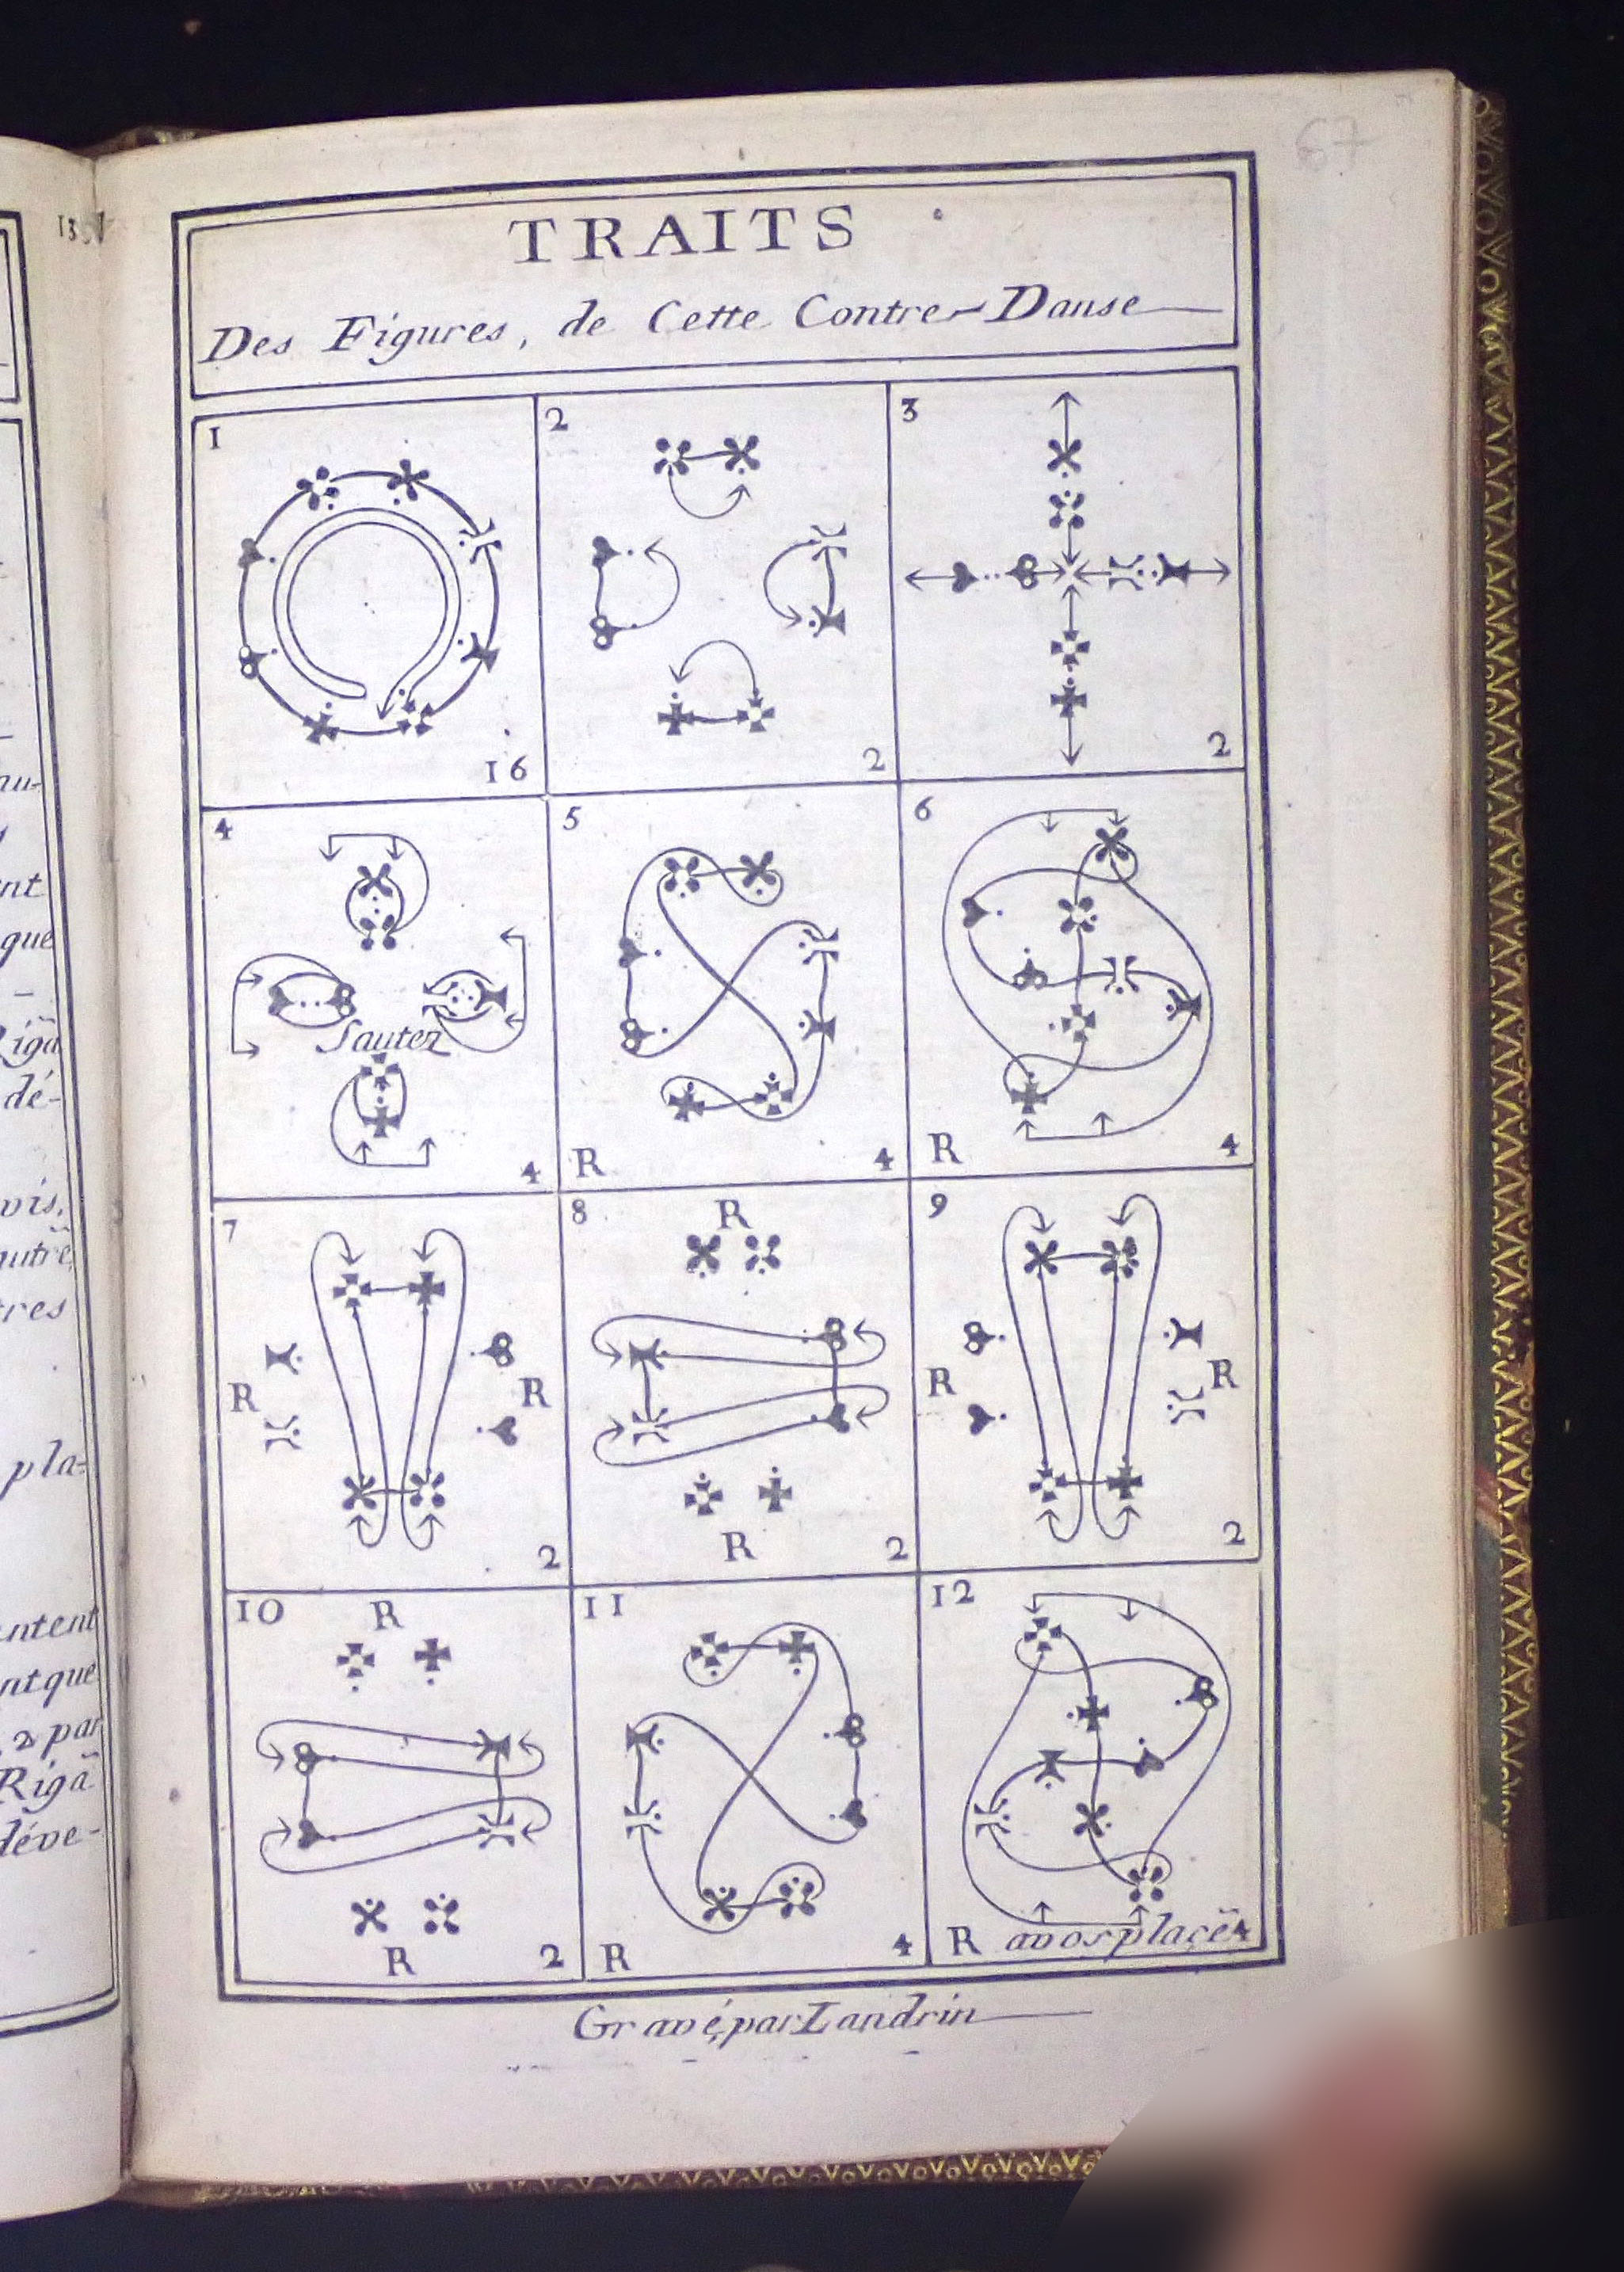 67
TRAITS
Des Figures, de Cette Contre-Danse
1
16
2
2
3
2
4
Sautez
4
5
R
4
6
R
4
7
R
R
2
8
R
R
2
9
R
R
2
10
R
R
2
11
R
4
12
R avos placẽ 4
Gravé, par Landrin
au-
ent
que
Rigã
dé-
ois,
autre,
tres
pla-
entent
ntque
2 par
Rigã
déve-